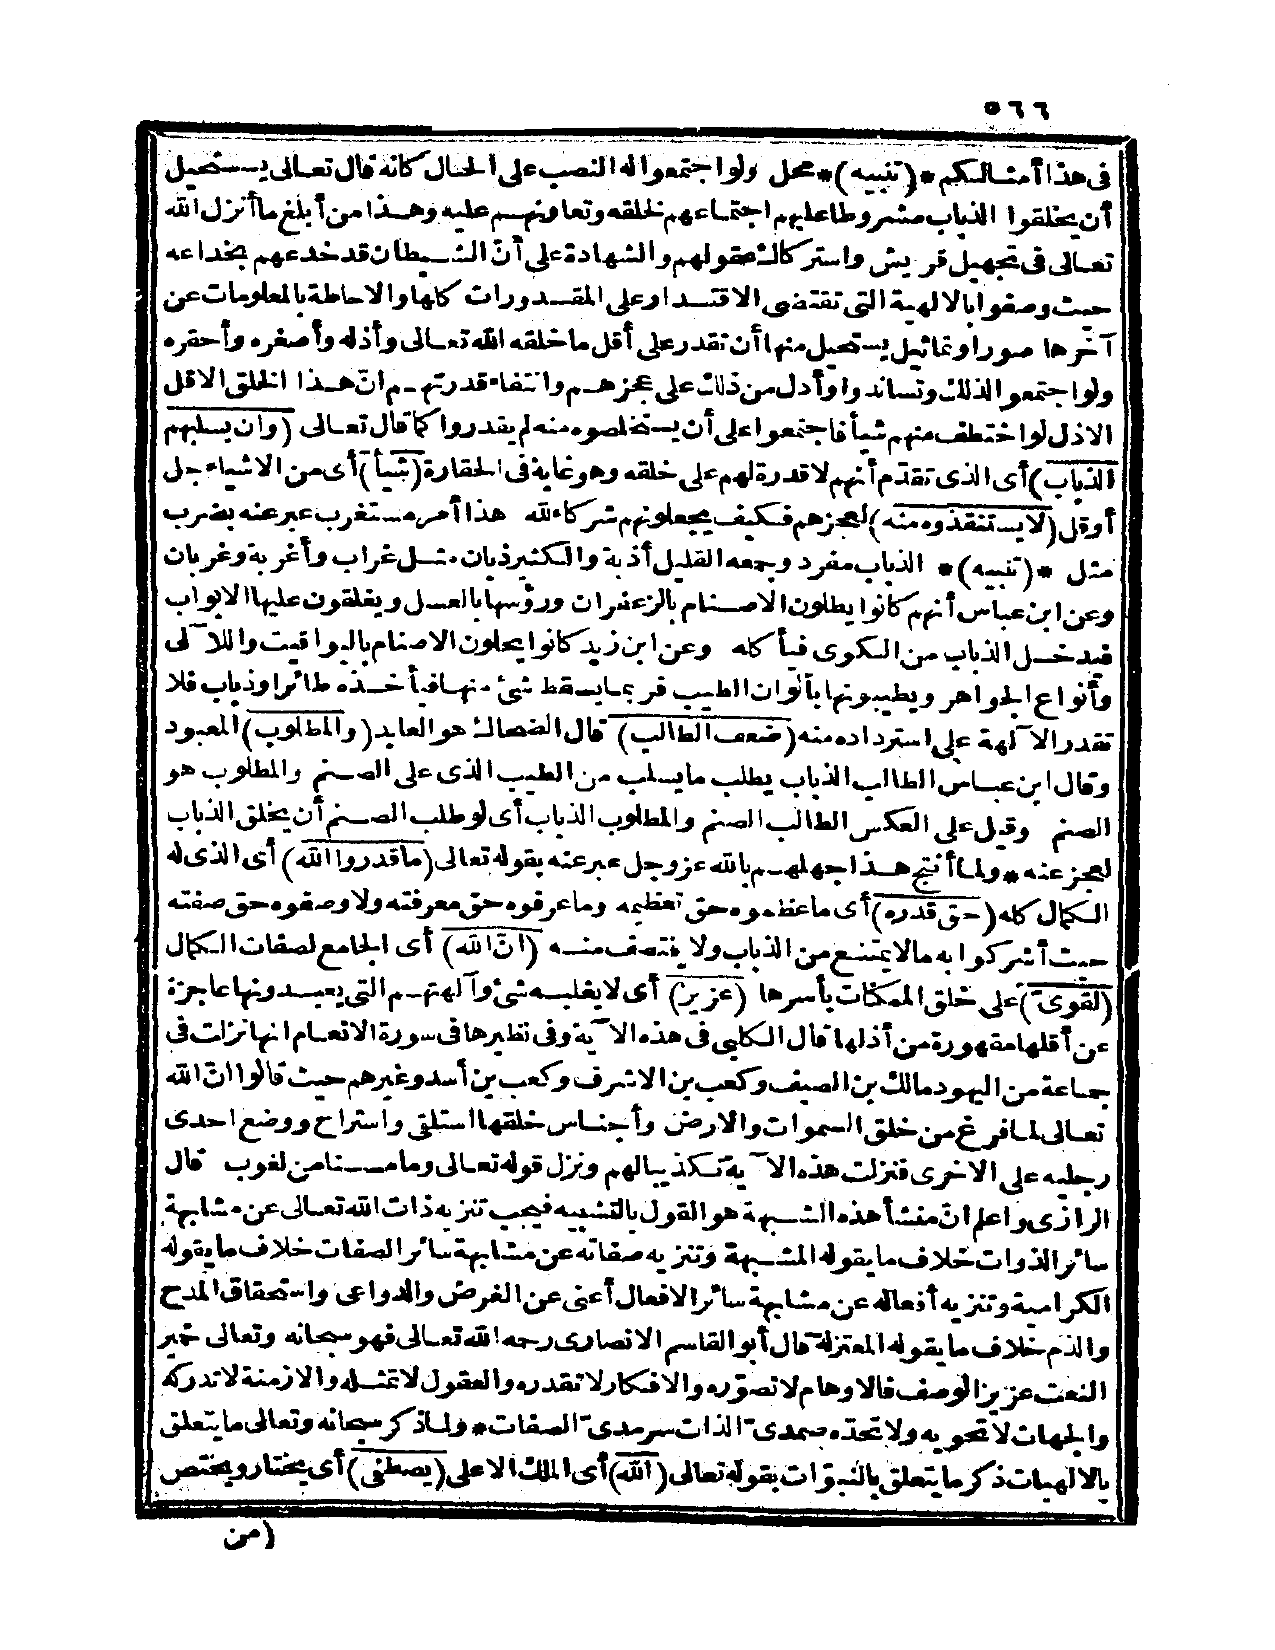 ٥٦٦
فى هذا أمثالكم * (تنبيه) * محل ولو اجتمعوا له النصب على الحال كانه قال تعالى يستحيل
أن يخلقوا الذباب مشروطا عليهم اجتماعهم لخلقه وتعاونهم عليه وهذا من أبلغ ما أنزل الله
تعالى فى تجهيل قريش واستركاك عقولهم والشهادة على أن الشيطان قد خدعهم بخداعه
حيث وصفوا بالالهية التى تقتضى الاقتدار على المقدورات كلها والاحاطة بالمعلومات عن
آخرها صورا وتماثيل يستحيل منها أن تقدر على أقل ما خلقه الله تعالى وأذله وأصغره وأحقره
ولو اجتمعوا لذلك وتساندوا وأدل من ذلك على عجزهم وانتفاء قدرتهم ان هذا الخلق الاقل
الاذل لو اختطف منهم شيأ فاجتمعوا على أن يستخلصوه منه لم يقدروا كما قال تعالى (وان يسلبهم
الذباب) أى الذى تقدم أنهم لا قدرة لهم على خلقه وهو غاية فى الحقارة (شيأ) أى من الاشياء جل
أو قل (لا يستنقذوه منه) لعجزهم فكيف يجعلونهم شركاء لله هذا أمر مستغرب عبر عنه بضرب
مثل * (تنبيه) * الذباب مفرد وجمعه القليل أذبة والكثير ذبان مثل غراب وأغربة وغربان
وعن ابن عباس أنهم كانوا يطلون الاصنام بالزعفران ورؤسها بالعسل ويغلقون عليها الابواب
فيدخل الذباب من الكوى فيأكله وعن ابن زيد كانوا يحلون الاصنام باليواقيت واللآلى
وأنواع الجواهر ويطيبونها بألوان الطيب فربما يسقط شئ منها فيأخذه طائر أو ذباب فلا
تقدر الآلهة على استرداده منه (ضعف الطالب) قال الضحاك هو العابد (والمطلوب) المعبود
وقال ابن عباس الطالب الذباب يطلب ما يسلب من الطيب الذى على الصنم والمطلوب هو
الصنم وقيل على العكس الطالب الصنم والمطلوب الذباب أى لو طلب الصنم أن يخلق الذباب
لعجز عنه * ولما أنتج هذا جهلهم بالله عز وجل عبر عنه بقوله تعالى (ما قدروا الله) أى الذى له
الكمال كله (حق قدره) أى ما عظموه حق تعظيمه وما عرفوه حق معرفته ولا وصفوه حق صفته
حيث أشركوا به مالا يمتنع من الذباب ولا ينتصف منه (ان الله) أى الجامع لصفات الكمال
(لقوى) على خلق الممكنات بأسرها (عزيز) أى لا يغلبه شئ وآلهتهم التى يعبدونها عاجزة
عن أقلها مقهورة من أذلها قال الكلبى فى هذه الآية وفى نظيرها فى سورة الانعام انها نزلت فى
جماعة من اليهود مالك بن الصيف وكعب بن الاشرف وكعب بن أسد وغيرهم حيث قالوا ان الله
تعالى لما فرغ من خلق السموات والارض وأجناس خلقها استلقى واستراح ووضع احدى
رجليه على الاخرى فنزلت هذه الآية تكذيبا لهم ونزل قوله تعالى وما مسنا من لغوب قال
الرازى واعلم ان منشأ هذه الشبهة هو القول بالتشبيه فيجب تنزيه ذات الله تعالى عن مشابهة
سائر الذوات خلاف ما يقوله المشبهة وتنزيه صفاته عن مشابهة سائر الصفات خلاف ما يقوله
الكرامية وتنزيه أفعاله عن مشابهة سائر الافعال أعنى عن الغرض والدواعى واستحقاق المدح
والذم خلاف ما يقوله المعتزلة قال أبو القاسم الانصارى رحمه الله تعالى فهو سبحانه وتعالى خبير
النعت عزيز الوصف فالاوهام لا تصوره والافكار لا تقدره والعقول لا تمثله والازمنة لا تدركه
والجهات لا تحويه ولا تحده صمدى الذات سرمدى الصفات * ولما ذكر سبحانه وتعالى ما يتعلق
بالالهيات ذكر ما يتعلق بالنبوات بقوله تعالى (الله) أى الملك الاعلى (يصطفى) أى يختار ويختص
(من